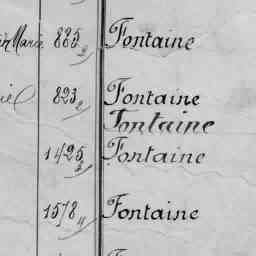 Marie 885 2 Fontaine
823 2 Fontaine
Fontaine
1425 3 Fontaine
1578 4 Fontaine